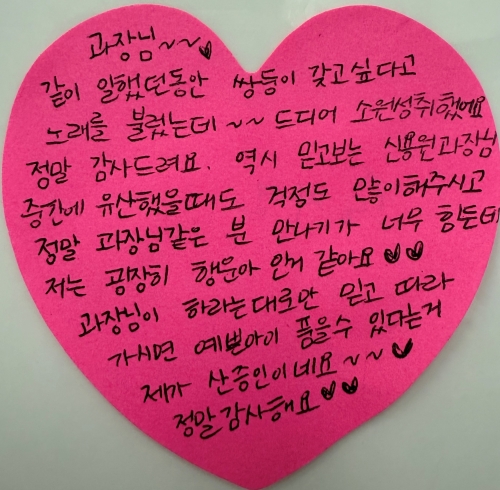 과장님~~♥
같이 일했던동안 쌍둥이 갖고싶다고
노래를 불렀는데~~ 드디어 소원성취했에요
정말 감사드려요. 역시 믿고보는 신용원과장님
중간에 유산했을때도 걱정도 많이해주시고
정말 과장님같은 분 만나기가 너무 힘든데
저는 굉장히 행운아 인거 같아요 ♥♥
과장님이 하라는대로만 믿고 따라
가시면 예쁜아이 품을수 있다는거
제가 산증인이네요~~♥
정말감사해요♥♥